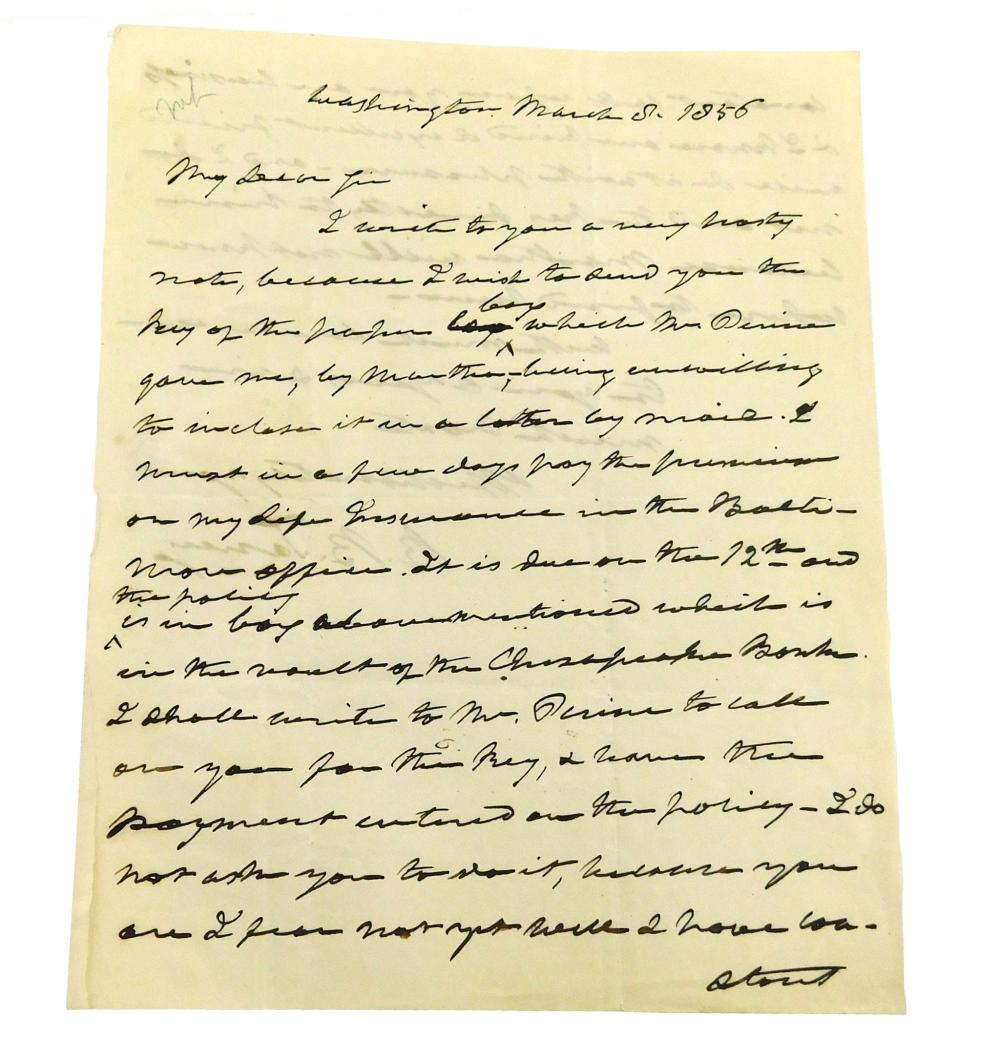 Washington March 8. 1856
My Dear Sir
I write to you a very hasty
note, because I wish to send you the
key of the paper box which Mr Perine
gave me, by Martha,- being unwilling
to inclose it in a letter by mail. I
must in a few days pay the premium
on my Life Insurance in the Balti-
more office. It is due on the 12th and
the policy
is in box above mentioned which is
in the vault of the Chesapeake Bank.
I shall write to Mr. Perine to call
on you for the key, & have the
payment entered on the policy - I do
not ask you to do it, because you
are I fear not yet well & have con-
stant